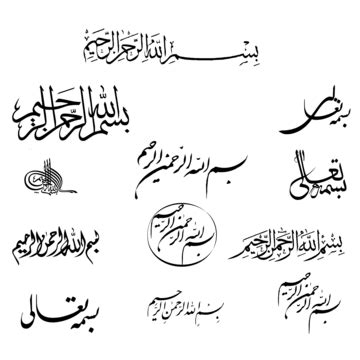 بسم الله الرحمن الرحیم
بسم الله الرحمن الرحیم
بسمه تعالی
بسم الله الرحمن الرحیم
بسمه تعالی
بسم الله الرحمن الرحیم
بسم الله الرحمن الرحیم
بسم الله الرحمن الرحیم
بسم الله الرحمن الرحیم
بسم الله الرحمن الرحیم
بسمه تعالی
بسم الله الرحمن الرحیم